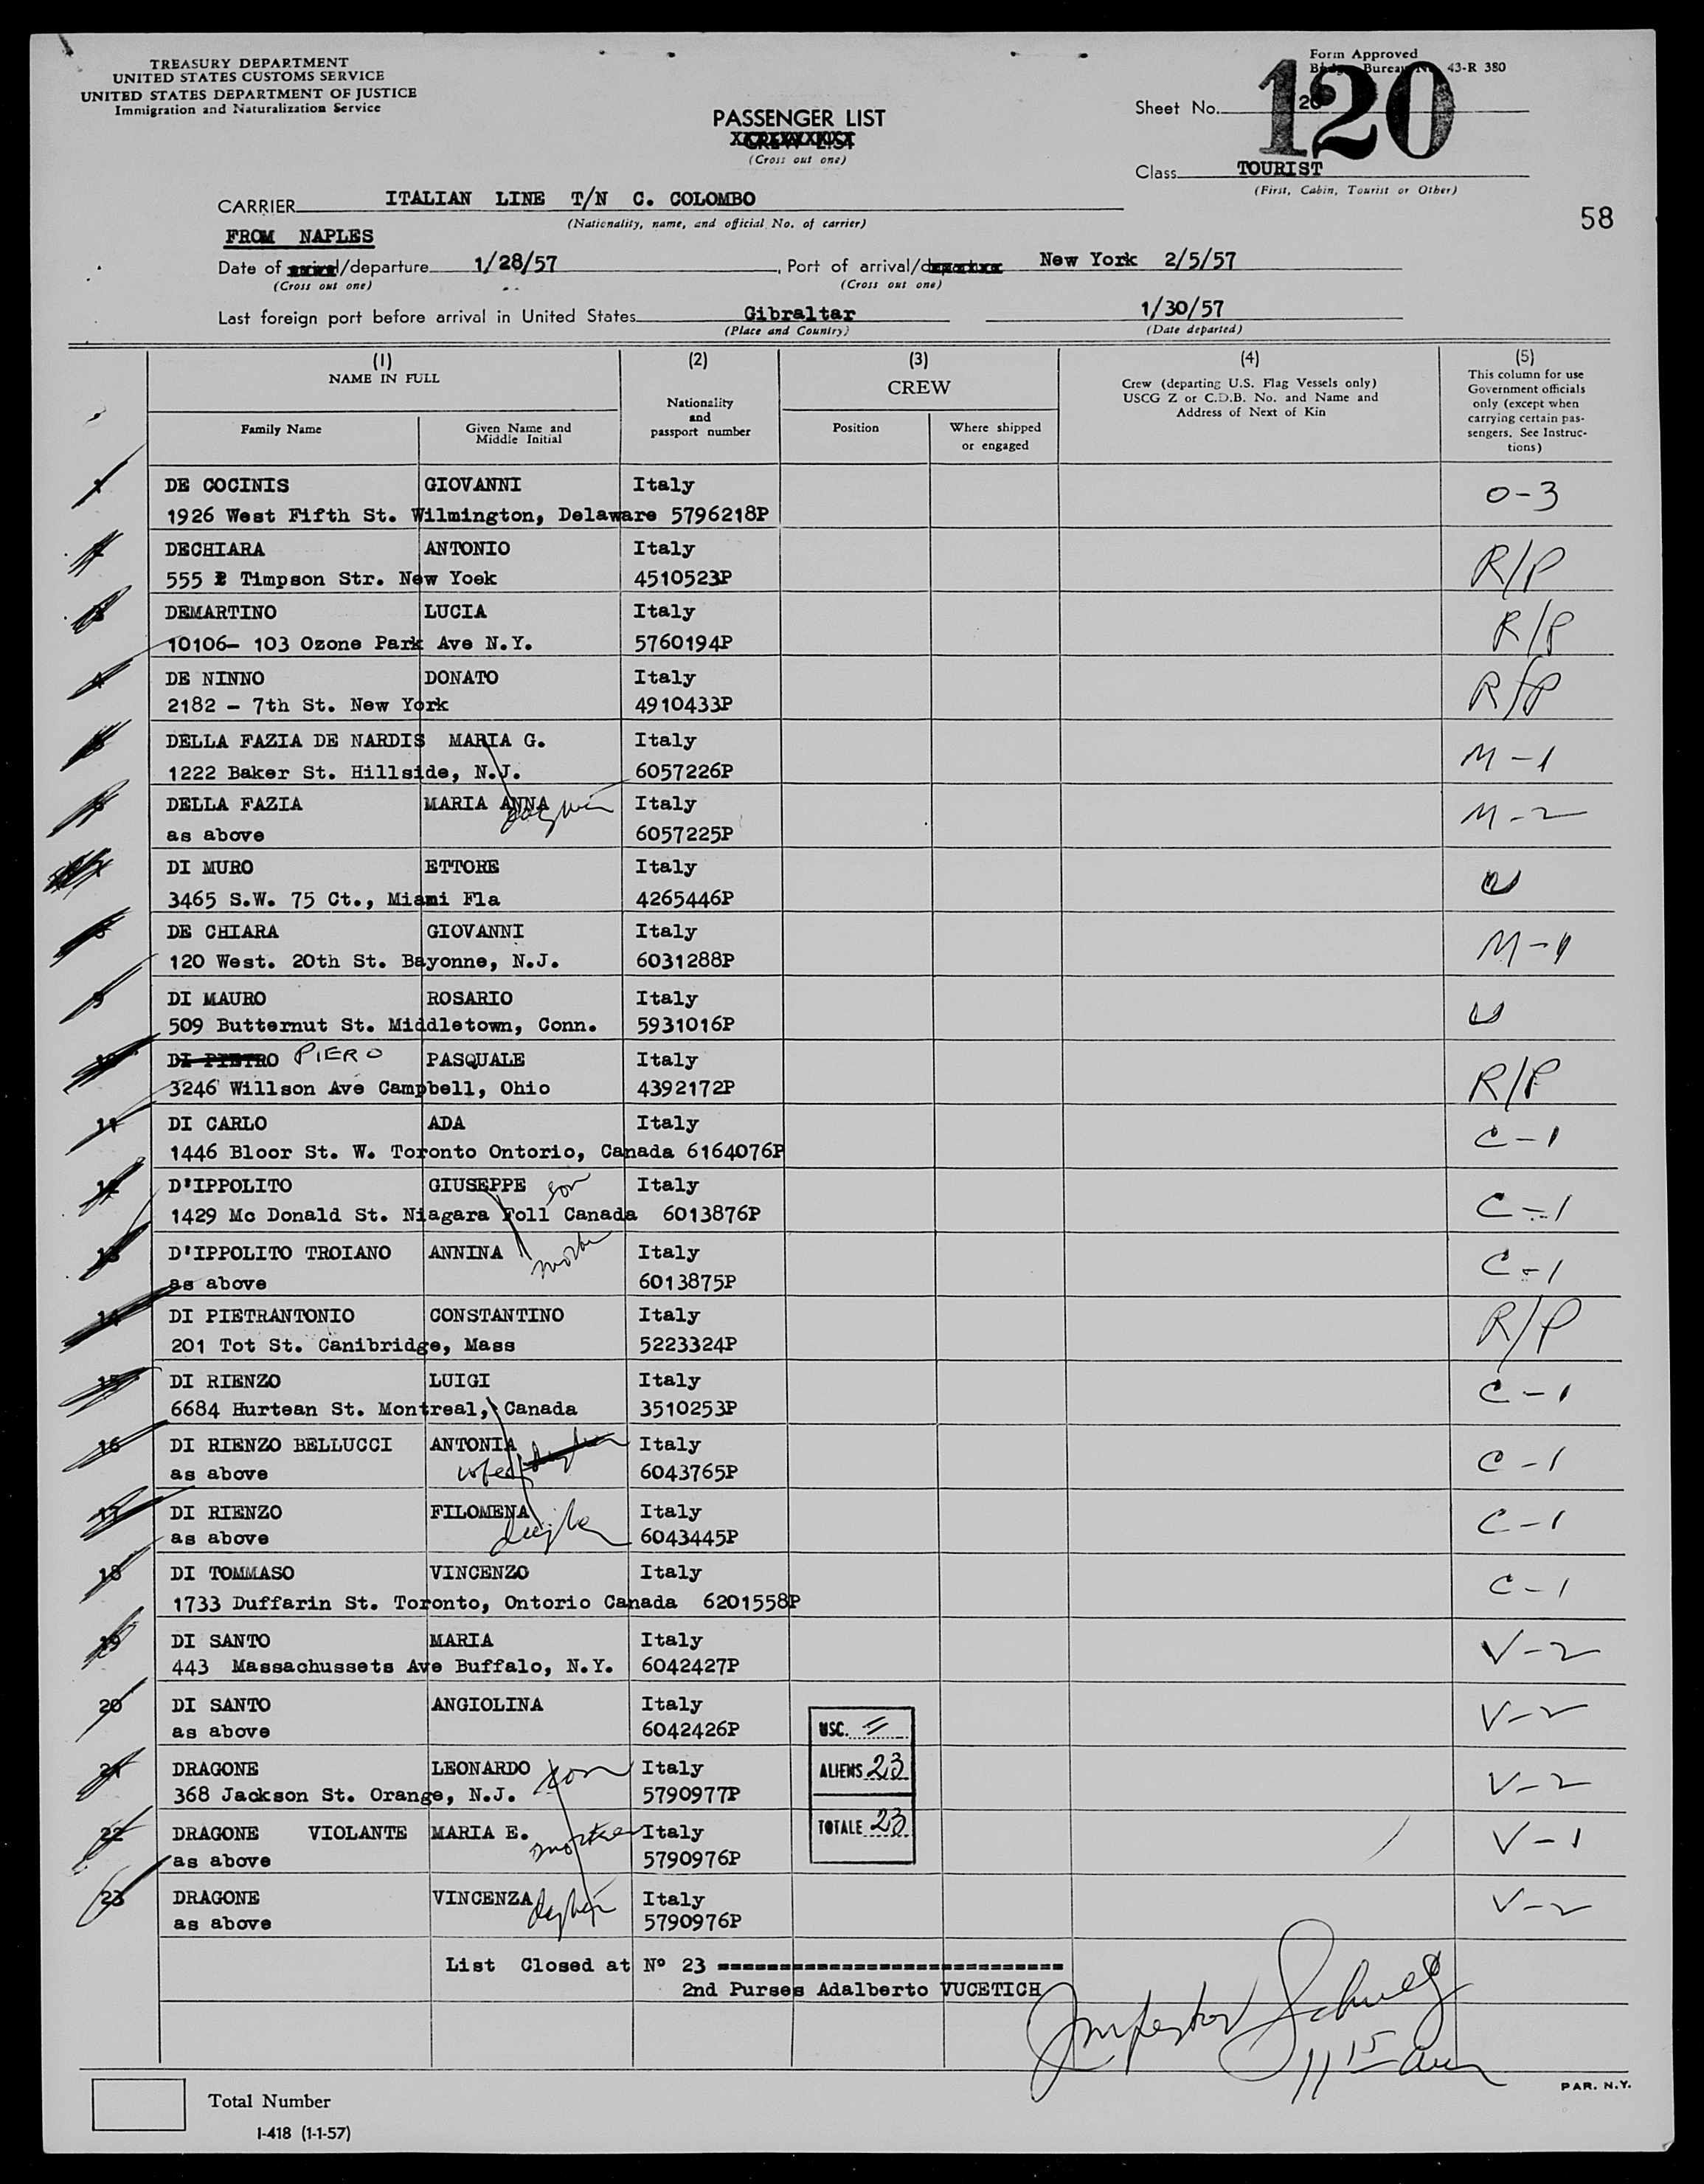 TREASURY DEPARTMENT
UNITED STATES CUSTOMS SERVICE
UNITED STATES DEPARTMENT OF JUSTICE
Immigration and Naturalization Service
Form Approved
Bureau No. 43-R 380
Sheet No. 120
PASSENGER LIST
CREW LIST
(Cross out one)
Class TOURIST
(First, Cabin, Tourist or Other)
CARRIER ITALIAN LINE T/N C. COLOMBO
(Nationality, name, and official No. of carrier)
58
FROM NAPLES
Date of arrival/departure 1/28/57, Port of arrival/departure New York 2/5/57
(Cross out one) (Cross out one)
Last foreign port before arrival in United States Gibraltar 1/30/57
(Place and Country) (Date departed)
(1) (2) (3) (4) (5)
NAME IN FULL
Family Name
Given Name and Middle Initial
Nationality and passport number
CREW
Position
Where shipped or engaged
Crew (departing U.S. Flag Vessels only)
USCG Z or C.D.B. No. and Name and
Address of Next of Kin
This column for use
Government officials
only (except when
carrying certain pas-
sengers. See Instruc-
tions)
1 DE COCINIS GIOVANNI Italy 0-3
1926 West Fifth St. Wilmington, Delaware 5796218P
2 DECHIARA ANTONIO Italy R/P
555 E Timpson Str. New Yoek 4510523P
3 DEMARTINO LUCIA Italy R/P
10106- 103 Ozone Park Ave N.Y. 5760194P
4 DE NINNO DONATO Italy R/P
2182 - 7th St. New York 4910433P
5 DELLA FAZIA DE NARDIS MARIA G. Italy M-1
1222 Baker St. Hillside, N.J. 6057226P
6 DELLA FAZIA MARIA ANNA Italy M-2
as above 6057225P
7 DI MURO ETTORE Italy U
3465 S.W. 75 Ct., Miami Fla 4265446P
8 DE CHIARA GIOVANNI Italy M-1
120 West. 20th St. Bayonne, N.J. 6031288P
9 DI MAURO ROSARIO Italy U
509 Butternut St. Middletown, Conn. 5931016P
10 DI PIETRO PIERO PASQUALE Italy R/P
3246 Willson Ave Campbell, Ohio 4392172P
11 DI CARLO ADA Italy C-1
1446 Bloor St. W. Toronto Ontorio, Canada 6164076P
12 D'IPPOLITO GIUSEPPE son Italy C-1
1429 Mc Donald St. Niagara Foll Canada 6013876P
13 D'IPPOLITO TROIANO ANNINA mother Italy C-1
as above 6013875P
14 DI PIETRANTONIO CONSTANTINO Italy R/P
201 Tot St. Canibridge, Mass 5223324P
15 DI RIENZO LUIGI Italy C-1
6684 Hurtean St. Montreal, Canada 3510253P
16 DI RIENZO BELLUCCI ANTONIA Italy C-1
as above wife 6043765P
17 DI RIENZO FILOMENA Italy C-1
as above 6043445P
18 DI TOMMASO VINCENZO Italy C-1
1733 Duffarin St. Toronto, Ontorio Canada 6201558P
19 DI SANTO MARIA Italy V-2
443 Massachussets Ave Buffalo, N.Y. 6042427P
20 DI SANTO ANGIOLINA Italy V-2
as above 6042426P
USC. =
21 DRAGONE LEONARDO son Italy V-2
368 Jackson St. Orange, N.J. 5790977P
ALIENS 23
22 DRAGONE VIOLANTE MARIA E. mother Italy V-1
as above 5790976P
TOTALE 23
23 DRAGONE VINCENZA Italy V-2
as above 5790976P
List Closed at Nº 23 ============================
2nd Purses Adalberto VUCETICH
11 15 am
Total Number
I-418 (1-1-57)
PAR. N.Y.